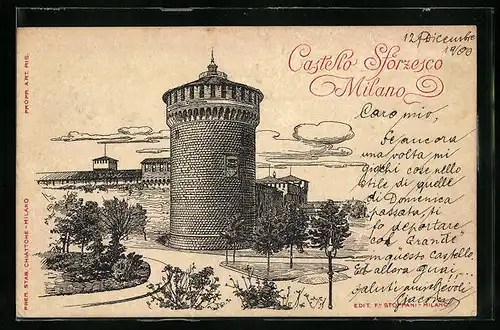 12 Dicembre
1900
Castello Sforzesco
Milano
Caro mio,
Se ancora
una volta mi
giochi cose nello
stile di quelle
di Domenica
passata, ti
fo deportare
con Grande
in questo Castello.
Ed allora guai,
saluti
PROPR. ART. RIS.
PREM. STAB. CHIATTONE - MILANO
EDIT. F.LLI STOPPANI - MILANO